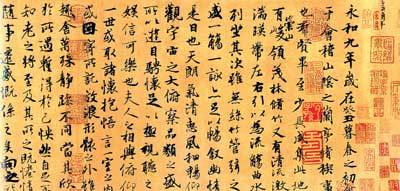 永和九年歲在癸丑暮春之初
于會稽山陰之蘭亭脩稧事
也群賢畢至少長咸集此
有崇山峻領茂林脩竹又有清流激
湍暎帶左右引以為流觴曲水
列坐其次雖無絲竹管弦
盛一觴一詠亦足以暢敘幽情
是日也天朗氣清惠風和暢仰
觀宇宙之大俯察品類之盛
所以遊目騁懷足以極視聽之
娛信可樂也夫人之相與俯仰
一世或取諸懷抱悟言一室之
或因寄所託放浪形骸之外雖
趣舍萬殊靜躁不同當其欣
於所遇蹔得於己怏然自足不
知老之將至及其所之既惓
隨事遷感慨係之矣向之